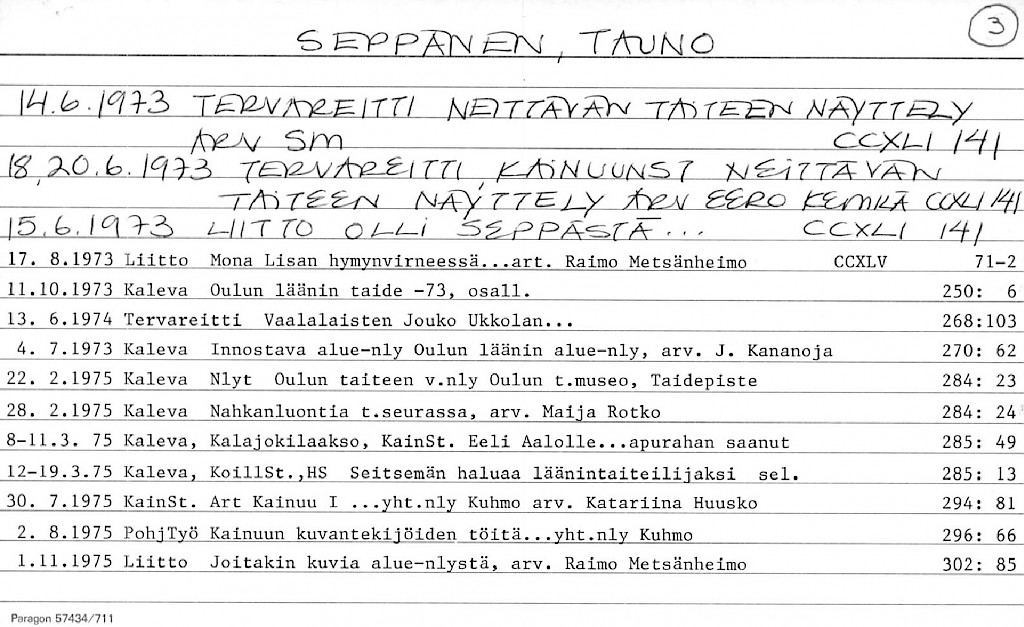 SEPPÄNEN, TAUNO
3
14.6.1973 TERVAREITTI NEITTÄVÄN TAITEEN NÄYTTELY
ARV SM CCXLI 141
18,20.6.1973 TERVAREITTI, KAINUUNST NEITTÄVÄN
TAITEEN NÄYTTELY ARV EERO KEMILÄ CCXLI 141
15.6.1973 LIITTO OLLI SEPPÄSTÄ... CCXLI 141
17. 8.1973 Liitto Mona Lisan hymynvirneessä...art. Raimo Metsänheimo CCXLV 71-2
11.10.1973 Kaleva Oulun läänin taide -73, osall. 250: 6
13. 6.1974 Tervareitti Vaalalaisten Jouko Ukkolan... 268:103
4. 7.1973 Kaleva Innostava alue-nly Oulun läänin alue-nly, arv. J. Kananoja 270: 62
22. 2.1975 Kaleva Nlyt Oulun taiteen v.nly Oulun t.museo, Taidepiste 284: 23
28. 2.1975 Kaleva Nahkanluontia t.seurassa, arv. Maija Rotko 284: 24
8-11.3. 75 Kaleva, Kalajokilaakso, KainSt. Eeli Aalolle...apurahan saanut 285: 49
12-19.3.75 Kaleva, KoillSt.,HS Seitsemän haluaa läänintaiteilijaksi sel. 285: 13
30. 7.1975 KainSt. Art Kainuu I ...yht.nly Kuhmo arv. Katariina Huusko 294: 81
2. 8.1975 PohjTyö Kainuun kuvantekijöiden töitä...yht.nly Kuhmo 296: 66
1.11.1975 Liitto Joitakin kuvia alue-nlystä, arv. Raimo Metsänheimo 302: 85
Paragon 57434/711